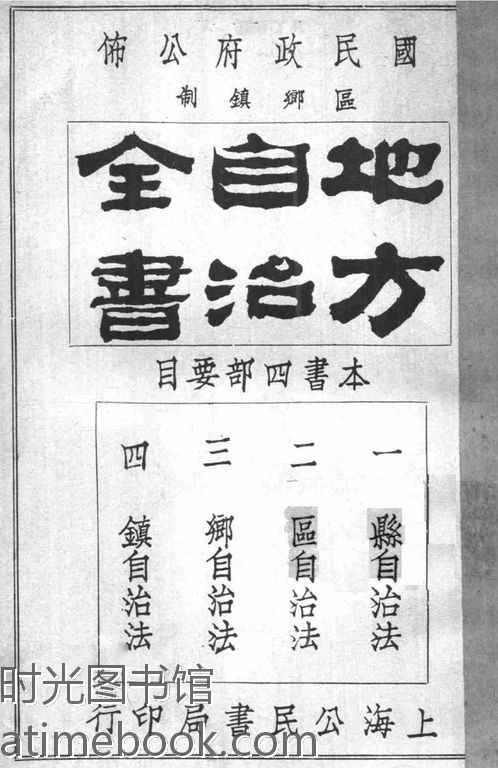 國民政府公佈
區鄉鎮制
地方
自治
全書
本書四部要目
一 縣自治法
二 區自治法
三 鄉自治法
四 鎮自治法
上海公民書局印行
时光图书馆
atimebook.com